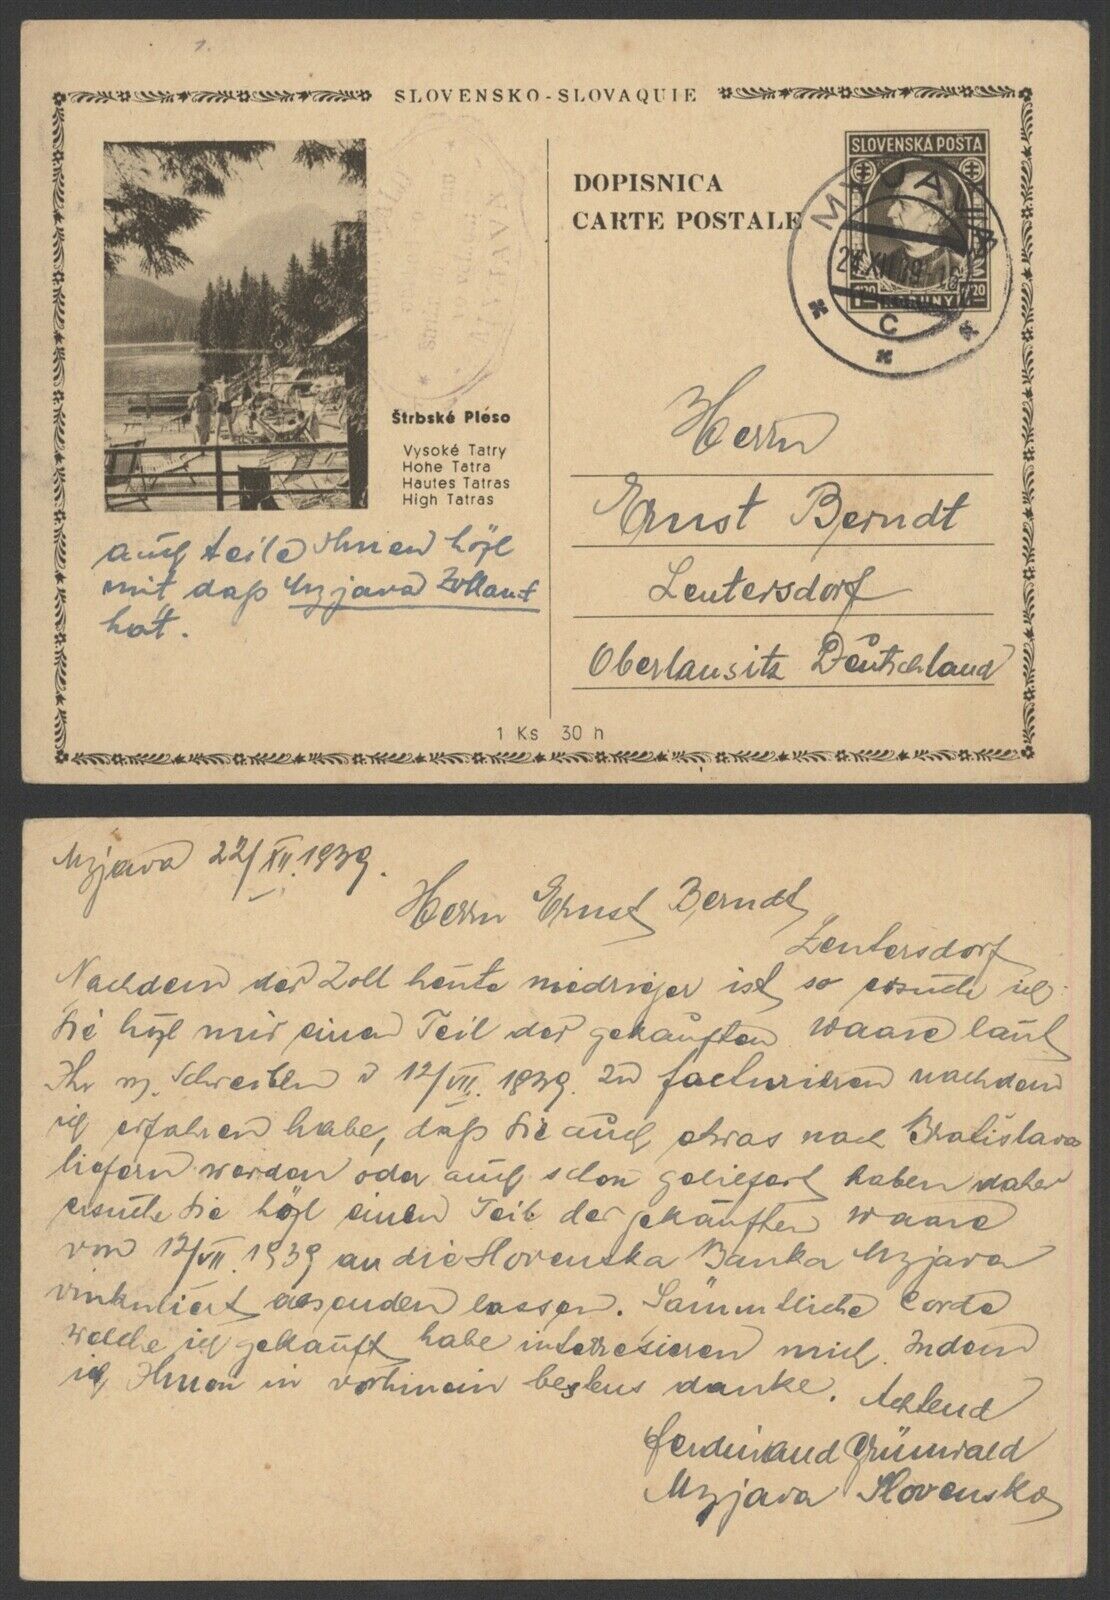 SLOVENSKO-SLOVAQUIE
DOPISNICA
CARTE POSTALE
SLOVENSKÁ POŠTA
MYJAVA
C
Štrbské Pleso
Vysoké Tatry
Hohe Tatra
Hautes Tatras
High Tatras
auch teile Ihnen höfl
mit daß Myjava Zollamt
hat.
Herrn
Ernst Berndt
Leutersdorf
Oberlausitz Deutschland
1 Ks 30 h
Myjava 22/XII.1939.
Herrn Ernst Berndt
Leutersdorf
Nachdem der Zoll heute niedriger ist so ersuche ich
Sie höfl mir einen Teil der gekauften Waare laut
Ihr w. Schreiben v 12/VII. 1939. zu facturieren nachdem
ich erfahren habe, daß Sie auch etwas nach Bratislava
liefern werden oder auch schon geliefert haben daher
ersuche Sie höfl einen Teil der gekauften Waare
von 12/VII. 1939 an die Slovenska Banka Myjava
vinkuliert absenden lassen. Sämmtliche Corde
welche ich gekauft habe interesieren mich. Indem
ich Ihnen in vorhinein bestens danke. Achtend
Ferdinand Grünwald
Myjava Slovensko